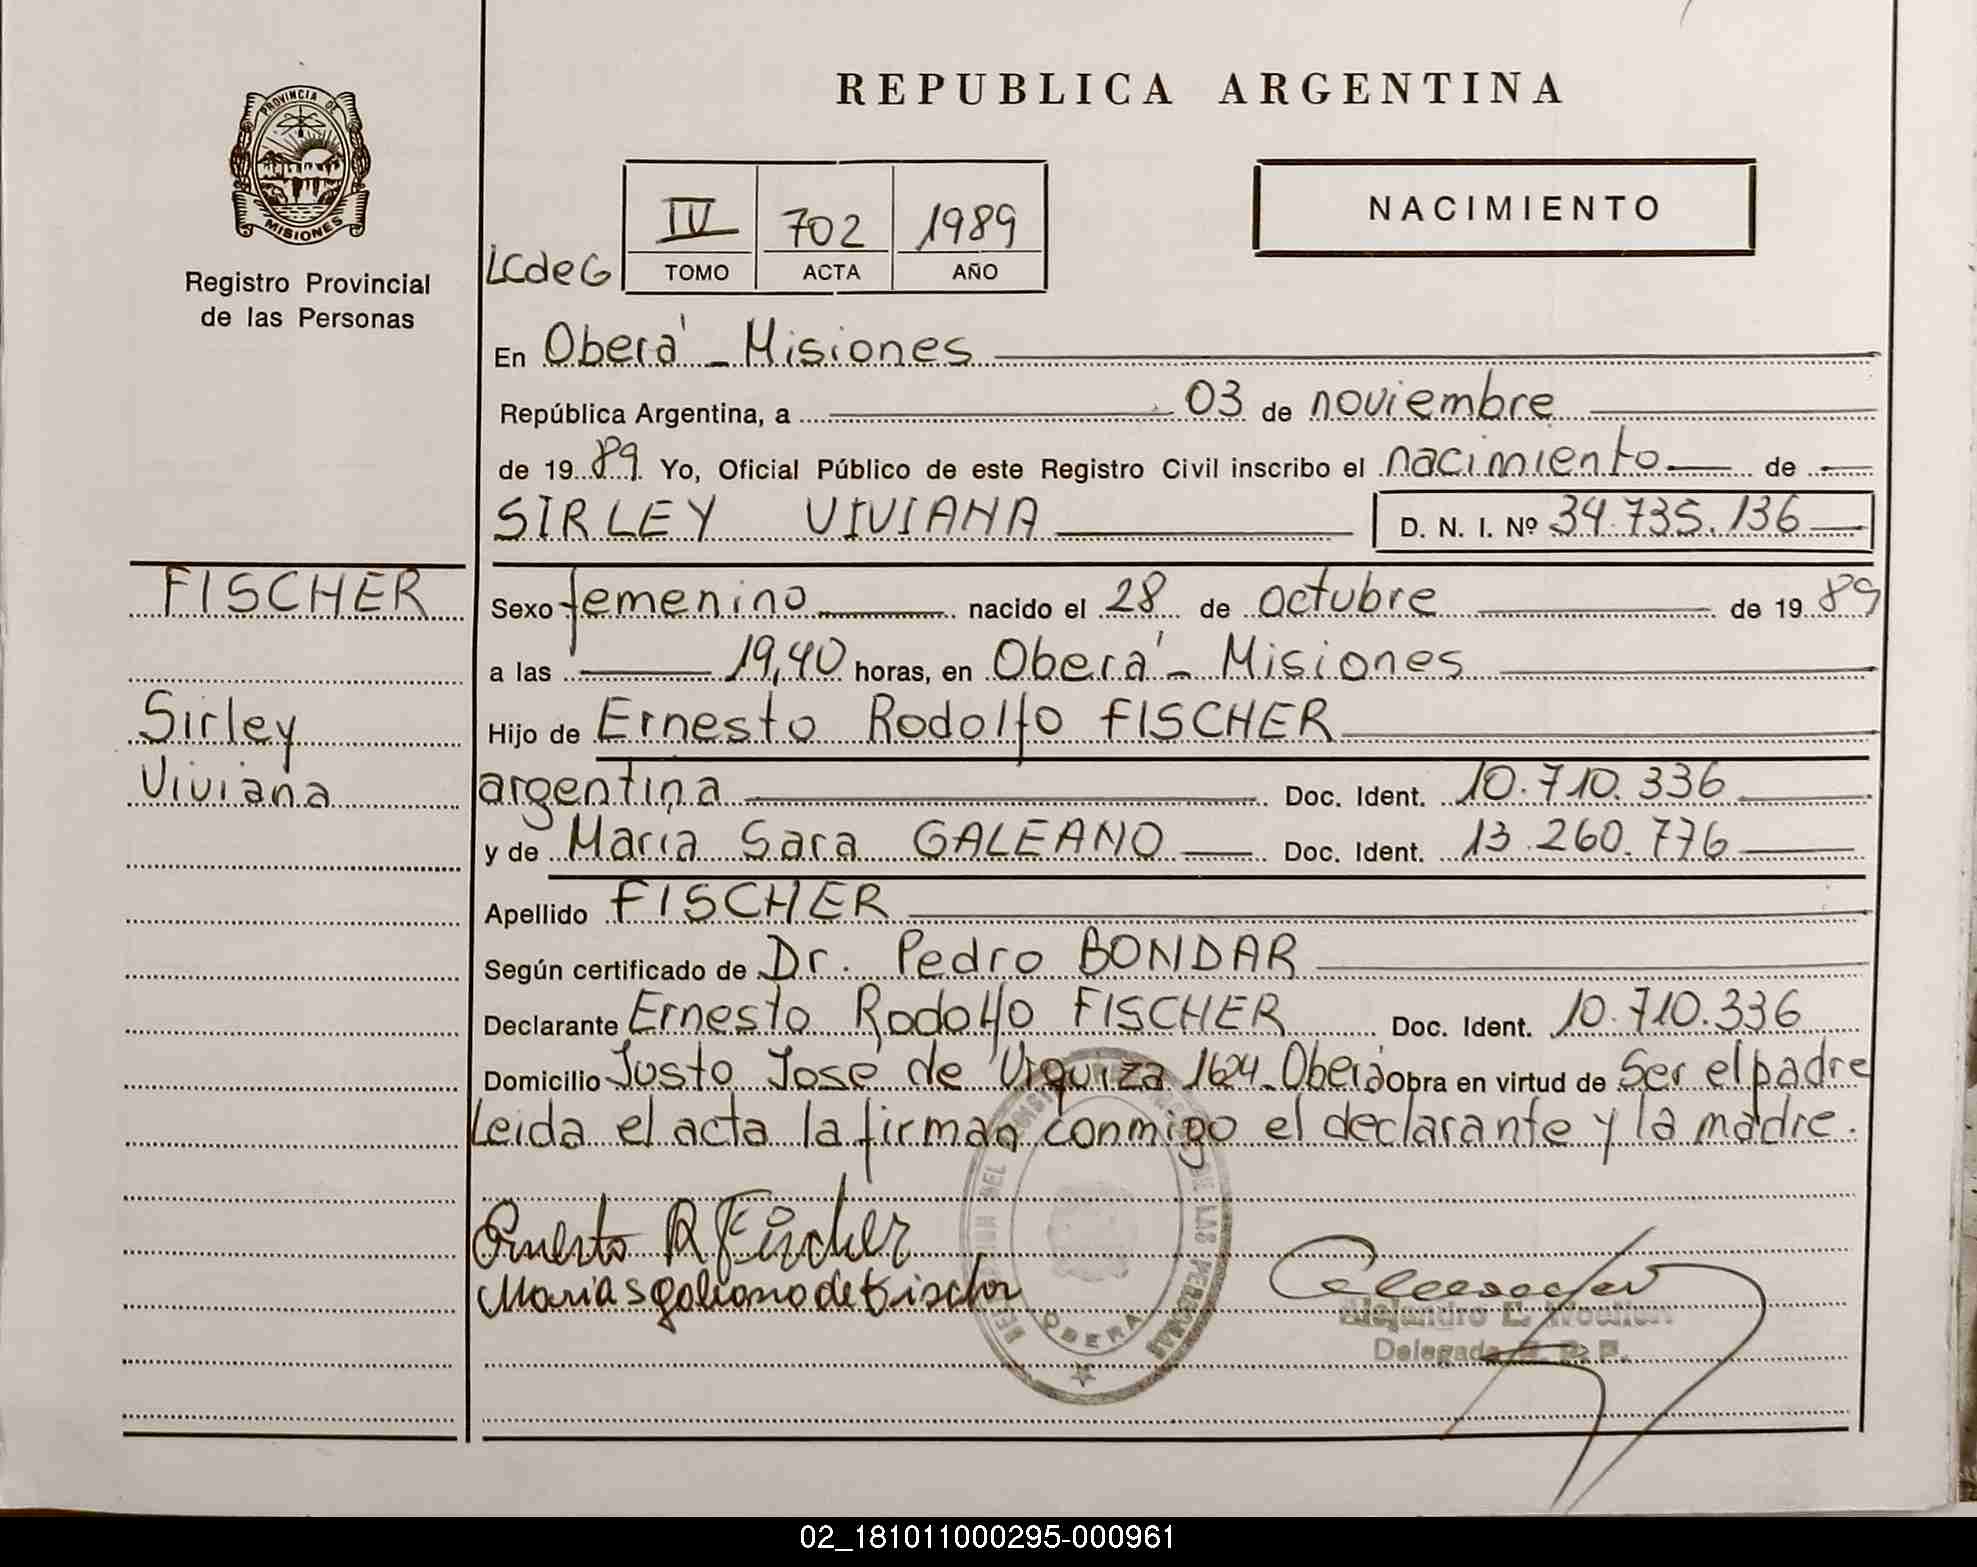 REPUBLICA ARGENTINA
PROVINCIA DE
MISIONES
Registro Provincial
de las Personas
IV 702 1989
LCdeG TOMO ACTA AÑO
NACIMIENTO
En Oberá - Misiones
República Argentina, a 03 de noviembre
de 19 89 Yo, Oficial Público de este Registro Civil inscribo el nacimiento de
SIRLEY VIVIANA D. N. I. Nº 34.735.136
FISCHER
Sirley
Viviana
Sexo femenino nacido el 28 de octubre de 19 89
a las 19,40 horas, en Oberá - Misiones
Hijo de Ernesto Rodolfo FISCHER
argentina Doc. Ident. 10.710.336
y de María Sara GALEANO Doc. Ident. 13.260.776
Apellido FISCHER
Según certificado de Dr. Pedro BONDAR
Declarante Ernesto Rodolfo FISCHER Doc. Ident. 10.710.336
Domicilio Justo José de Urquiza 1624-Oberá Obra en virtud de Ser el padre
Leida el acta la firman conmigo el declarante y la madre.
Ernesto R Fischer
Maria S galeano de Fischer
DE LAS PERSONAS
OBERA
Alejandro E.
Delegado R. P. P.
02_181011000295-000961